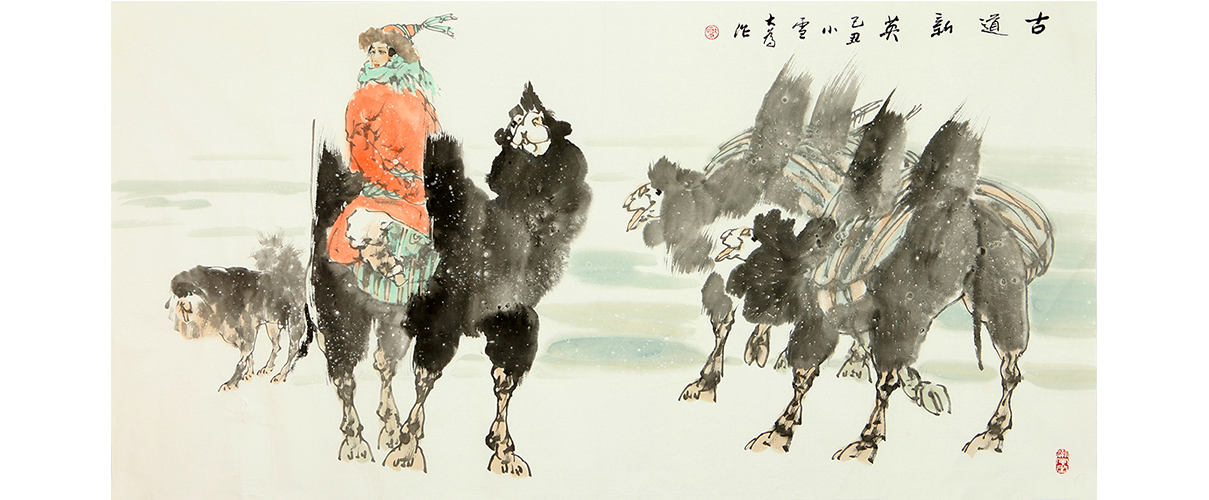 古道新英 乙丑小雪 大為作